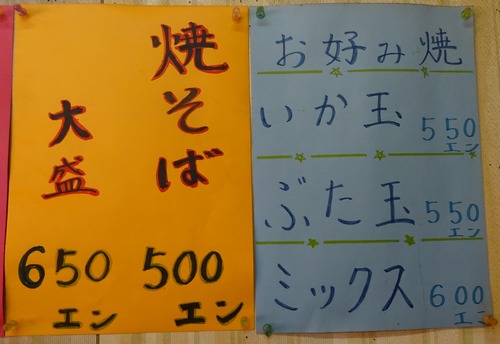 焼そば
500
エン
大盛
650
エン
お好み焼
いか玉 550エン
ぶた玉 550エン
ミックス 600エン